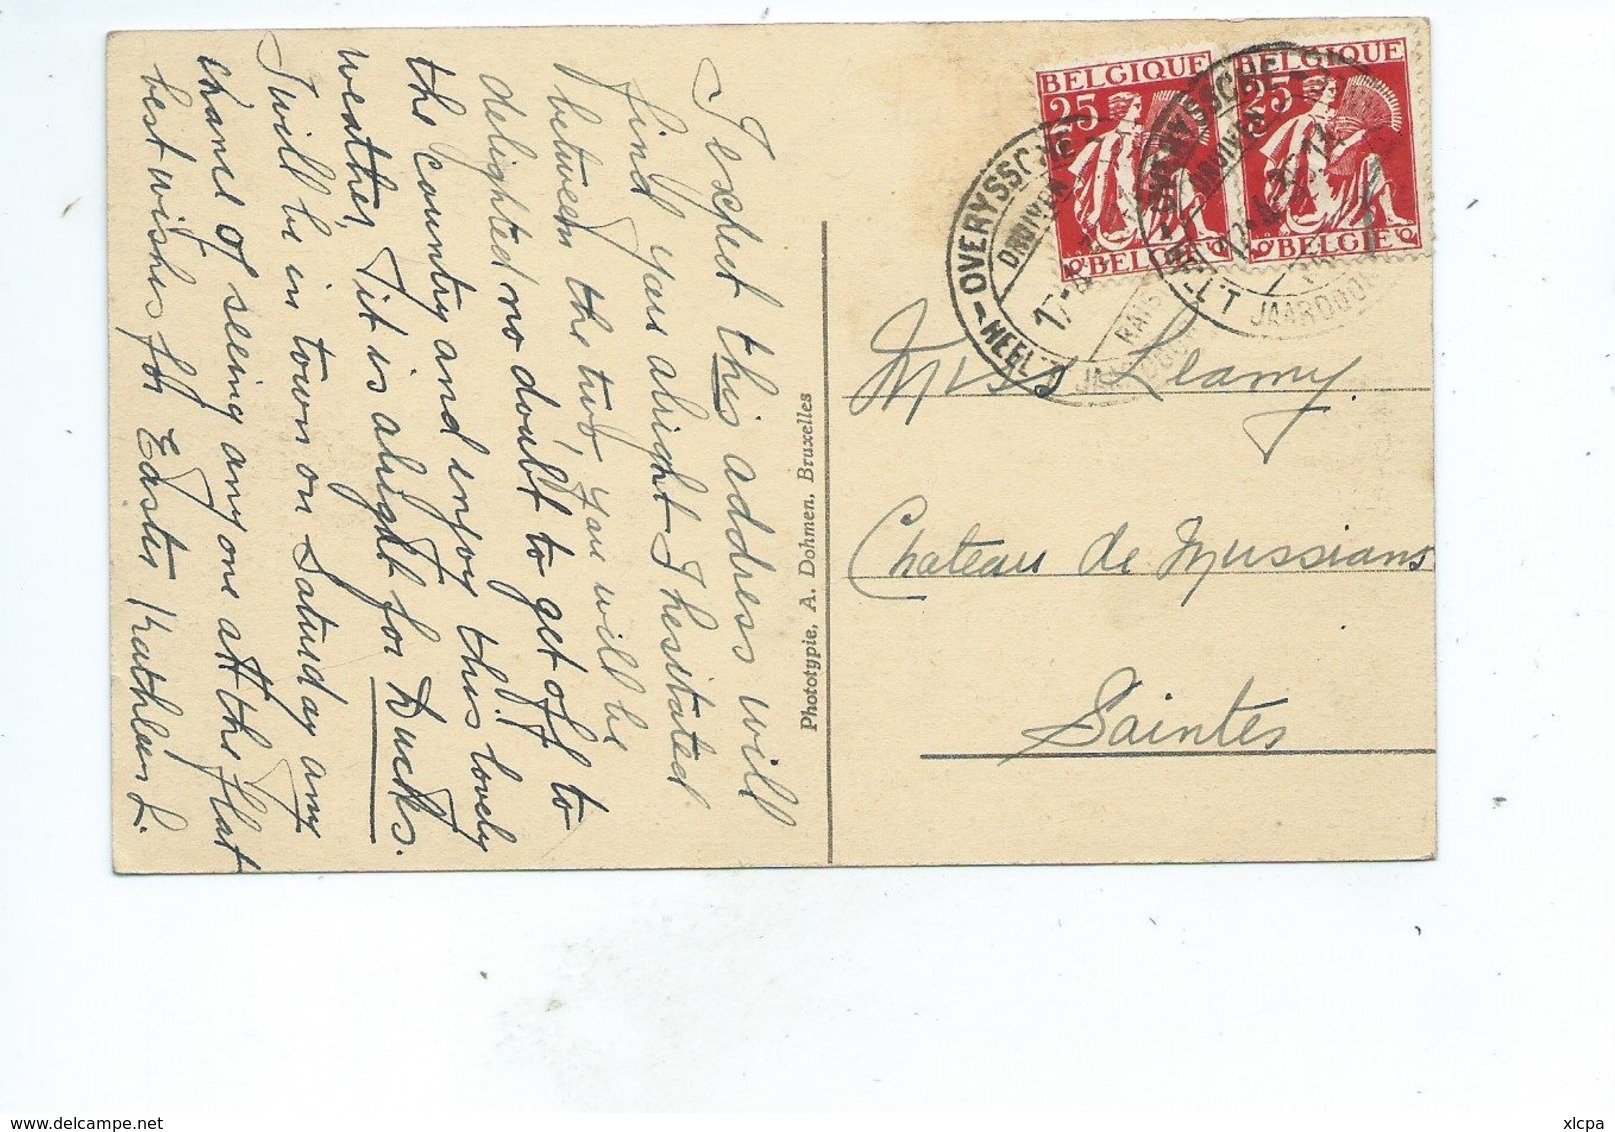 I expect this address will
find you alright I hesitated
between the two, you will be
delighted no doubt to get off to
the country and enjoy this lovely
weather, it is alright for Ducks.
I will be in town on Saturday any
chance of seeing any one at the flat
best wishes for Easter Kathleen L.
Phototypie, A. Dohmen, Bruxelles
BELGIQUE
25
BELGIE
BELGIQUE
25
BELGIE
OVERYSSCHE
DRUIVEN
HEEL 'T JAARDOOR
Miss Leamy.
Chateau de Mussians
Saintes
delcampe.net
xlcpa